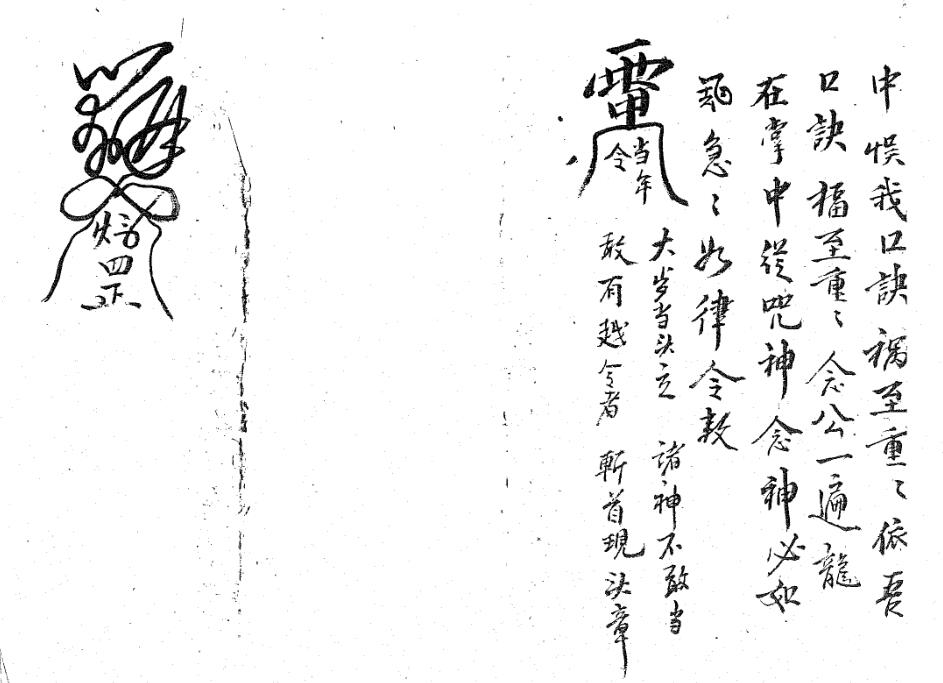 中悮我口訣禍至重〻依吾
口訣福至重〻念公一遍龍
在掌中從咒神念神必如
急〻如律令敕
雷
当年
令
大岁当头立 诸神不敢当
敢有越令者 斬首現决章
四
正